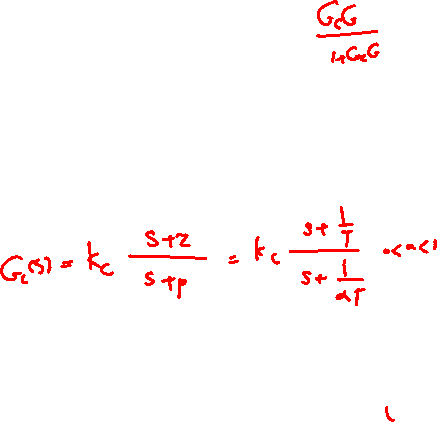 G_c G / 1+G_c G
G_c(s) = k_c (s+z)/(s+p) = k_c (s+1/T)/(s+1/αT) 0<α<1
(